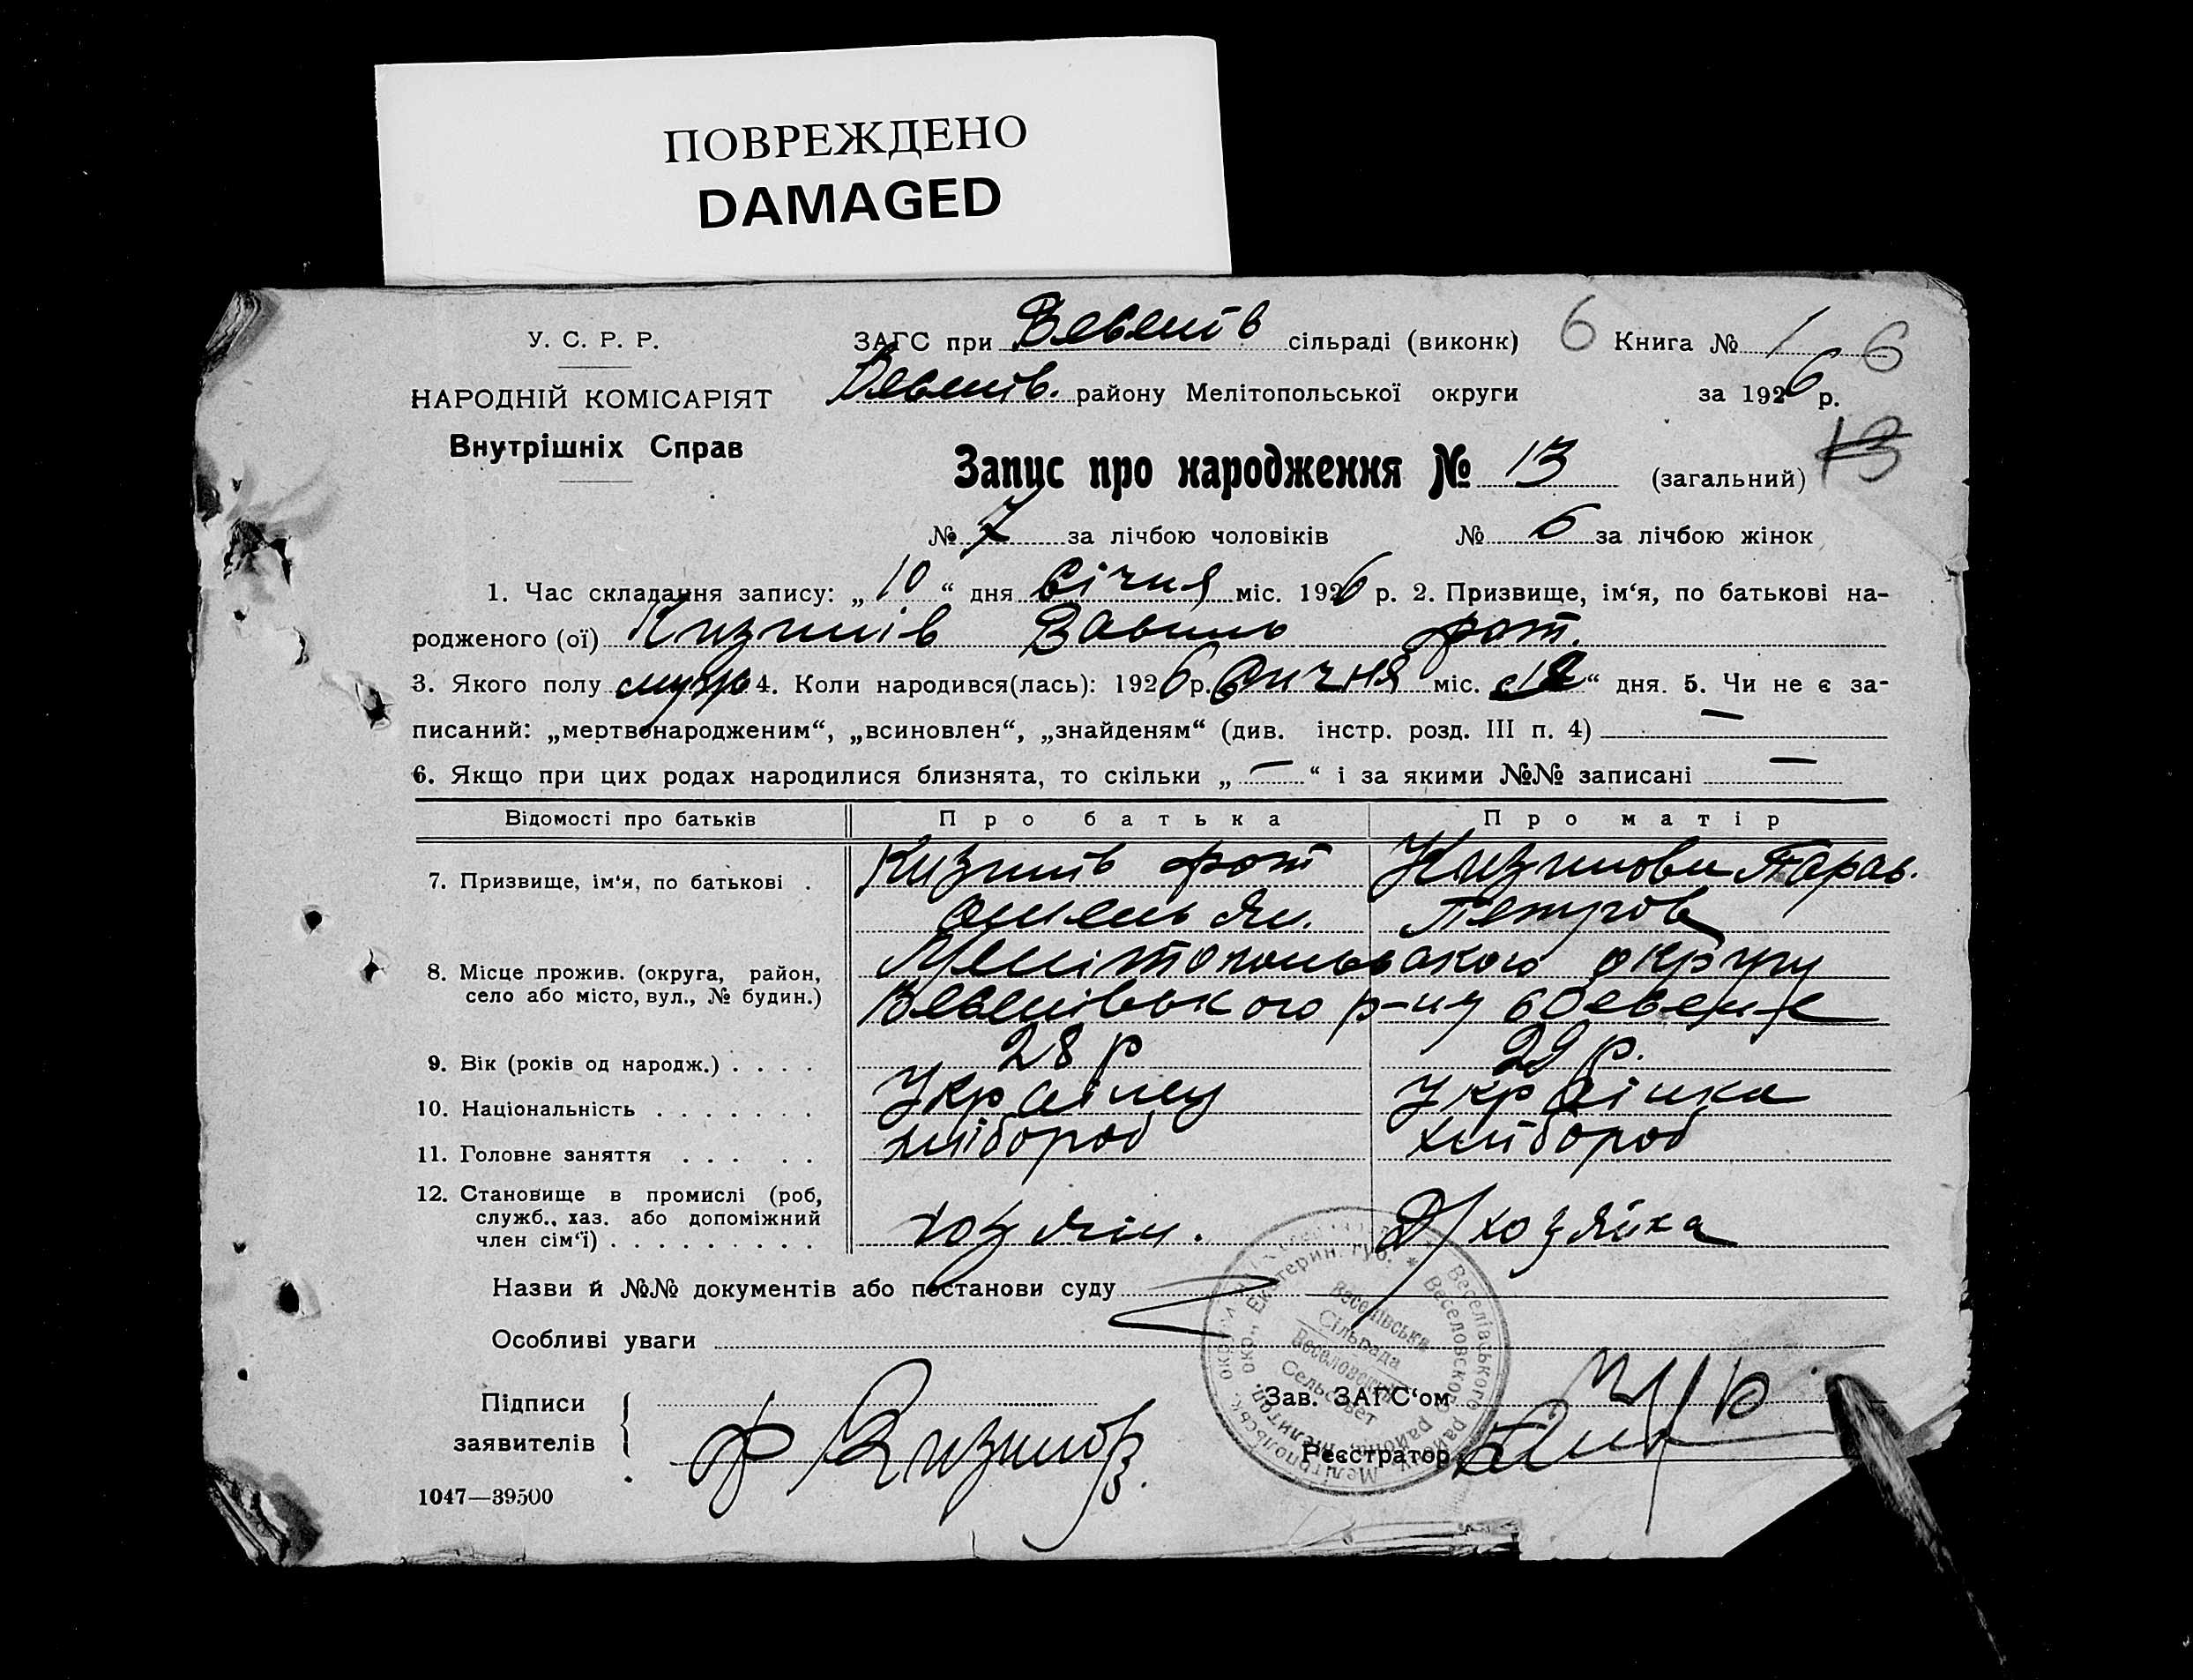 ПОВРЕЖДЕНО
DAMAGED
У. С. Р. Р.
НАРОДНІЙ КОМІСАРІЯТ
Внутрішніх Справ
ЗАГС при Веселів сільраді (виконк) 6 Книга № 1 6
Веселів. району Мелітопольської округи за 1926 р.
Запис про народження № 13 (загальний) 13
№ 7 за лічбою чоловіків № 6 за лічбою жінок
1. Час складання запису: „10“ дня Січня міс. 1926 р. 2. Призвище, ім‘я, по батькові на-
родженого (ої) Кизилів Вавило
3. Якого полу 4. Коли народився(лась): 1926 р. Сичня міс. “ дня. 5. Чи не є за-
писаний: „мертвонародженим“, „всиновлен“, „знайденям“ (див. інстр. розд. III п. 4) —
6. Якщо при цих родах народилися близнята, то скільки „—“ і за якими №№ записані —
Відомості про батьків Про батька Про матір
7. Призвище, ім‘я, по батькові . Кизилів Кизилова Парас.
Омельян. Петров
8. Місце прожив. (округа, район, село або місто, вул., № будин.) Мелітопольського округу
Веселівського р-ну
9. Вік (років од народж.) . . . . 28 р 29 р.
10. Національність . . . . . . . Українец Українка
11. Головне заняття . . . . . хлібороб хлібороб
12. Становище в промислі (роб, служб., хаз. або допоміжний член сім‘ї) . . . . . . . . . хозяін. Д/хозяйка
Назви й №№ документів або постанови суду
Особливі уваги
Підписи
заявителів
Ф Кизилов
Зав. ЗАГС‘ом
Реєстратор
Веселівська
Сільрада
Веселовский
Сельсовет
1047—39500